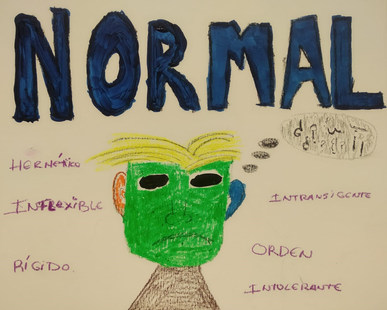 NORMAL
HERMÉTICO
INFLEXIBLE
INTRANSIGENTE
RÍGIDO
ORDEN
INTOLERANTE